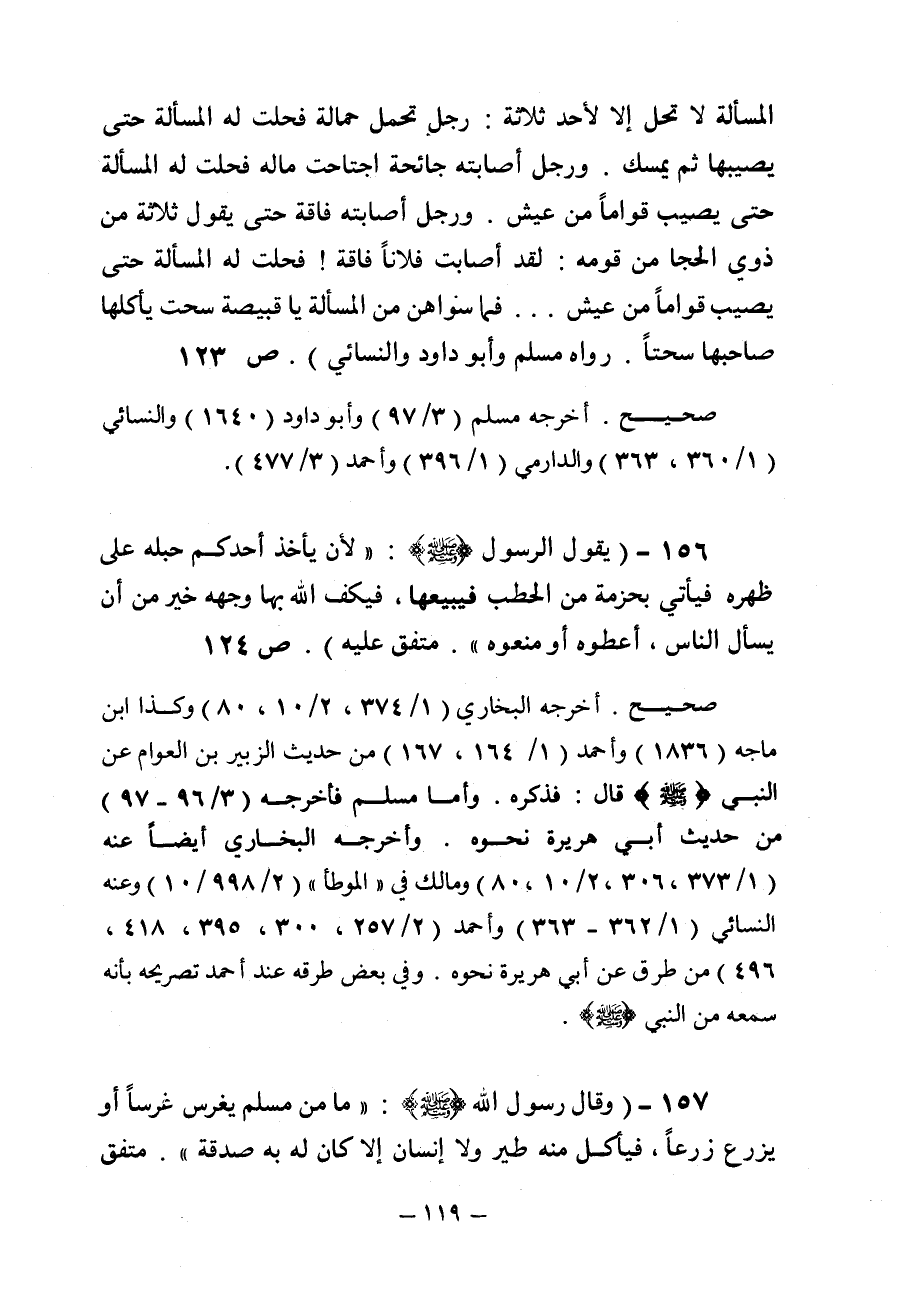 المسألة لا تحل إلا لأحد ثلاثة : رجل تحمل حمالة فحلت له المسألة حتى
يصيبها ثم يمسك . ورجل أصابته جائحة اجتاحت ماله فحلت له المسألة
حتى يصيب قواماً من عيش . ورجل أصابته فاقة حتى يقول ثلاثة من
ذوي الحجا من قومه : لقد أصابت فلاناً فاقة ! فحلت له المسألة حتى
يصيب قواماً من عيش ... فما سواهن من المسألة يا قبيصة سحت يأكلها
صاحبها سحتاً . رواه مسلم وأبو داود والنسائي ) . ص ١٢٣
صحيـــح . أخرجه مسلم ( ٩٧/٣ ) وأبو داود ( ١٦٤٠ ) والنسائي
( ٣٦٠/١ ، ٣٦٣ ) والدارمي ( ٣٩٦/١ ) وأحمد ( ٤٧٧/٣ ).
١٥٦ - ( يقول الرسول ﴿ﷺ﴾ : « لأن يأخذ أحدكم حبله على
ظهره فيأتي بحزمة من الحطب فيبيعها ، فيكف الله بها وجهه خير من أن
يسأل الناس ، أعطوه أو منعوه » . متفق عليه ) . ص ١٢٤
صحيـــح . أخرجه البخاري ( ٣٧٤/١ ، ١٠/٢ ، ٨٠ ) وكـذا ابن
ماجه ( ١٨٣٦ ) وأحمد ( ١/ ١٦٤ ، ١٦٧ ) من حديث الزبير بن العوام عن
النبـي ﴿ ﷺ ﴾ قال : فذكره . وأمـا مسلـم فأخرجـه ( ٩٦/٣ ـ ٩٧ )
من حديث أبـي هريرة نحـوه . وأخرجـه البخـاري أيضـاً عنه
( ٣٧٣/١ ، ٣٠٦ ، ١٠/٢ ، ٨٠ ) ومالك في « الموطأ » ( ١٠/٩٩٨/٢ ) وعنه
النسائي ( ٣٦٢/١ ـ ٣٦٣ ) وأحمد ( ٢٥٧/٢ ، ٣٠٠ ، ٣٩٥ ، ٤١٨ ،
٤٩٦ ) من طرق عن أبي هريرة نحوه . وفي بعض طرقه عند أحمد تصريحه بأنه
سمعه من النبي ﴿ﷺ﴾ .
١٥٧ - ( وقال رسول الله ﴿ﷺ﴾ : « ما من مسلم يغرس غرساً أو
يزرع زرعاً ، فيأكل منه طير ولا إنسان إلا كان له به صدقة » . متفق
– ١١٩ –